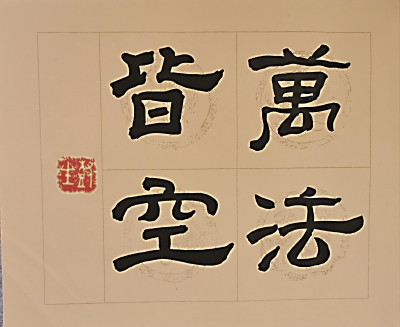 萬法
皆空